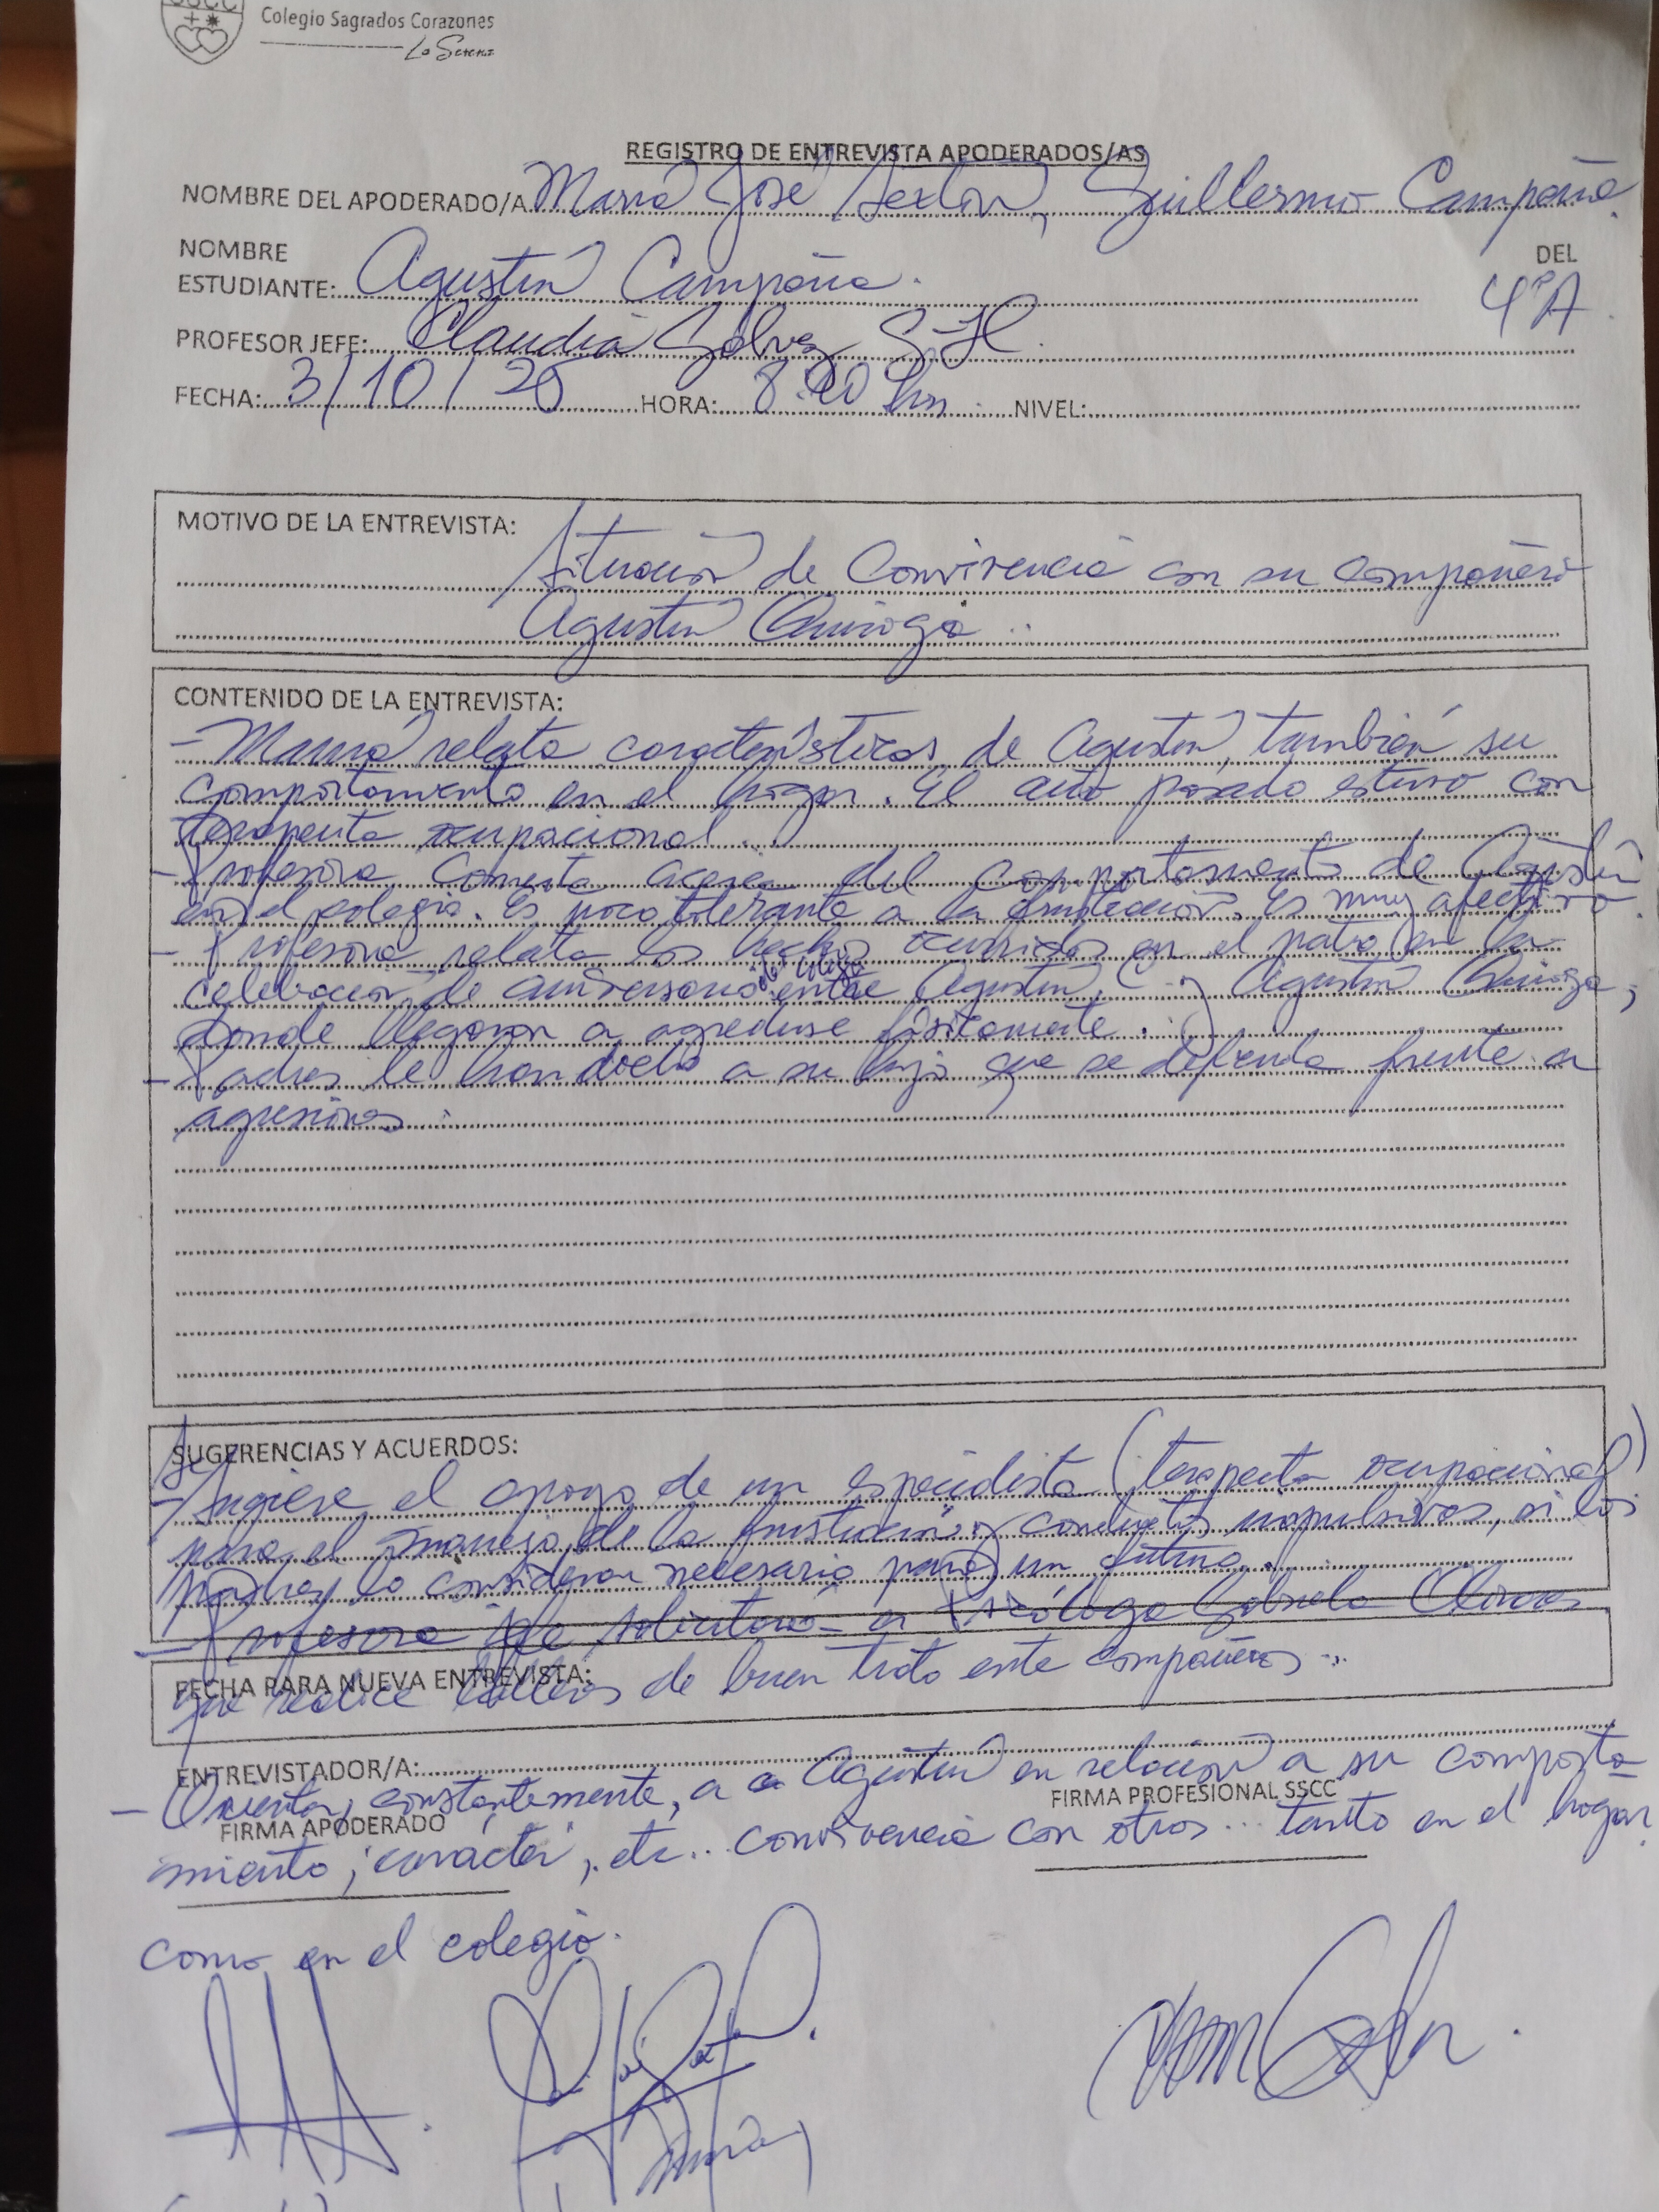 SSCC
Colegio Sagrados Corazones
La Serena
REGISTRO DE ENTREVISTA APODERADOS/AS
NOMBRE DEL APODERADO/A María José Sexton, Guillermo Campaña
NOMBRE DEL
ESTUDIANTE: Agustín Campaña. 4ºA
PROFESOR JEFE: Claudia Gálvez
FECHA: 3/10/ HORA: 8: hrs NIVEL:
MOTIVO DE LA ENTREVISTA:
Situación de Convivencia con su compañero
Agustín Quiroga.
CONTENIDO DE LA ENTREVISTA:
- Mamá relata características de Agustín, también su
comportamiento en el hogar. El año pasado estuvo con
terapeuta ocupacional.
- Profesora comenta acerca del comportamiento de Agustín
en el colegio. Es poco tolerante a la frustración. Es muy afectivo.
- Profesora relata los hechos ocurridos en el patio en la
celebración de aniversario del colegio entre Agustín C. y Agustín Quiroga,
donde llegaron a agredirse físicamente.
- Padres le han dicho a su hijo que se defienda frente a
agresiones.
SUGERENCIAS Y ACUERDOS:
- Se sugiere el apoyo de un especialista (terapeuta ocupacional)
para el manejo de la frustración y conductas impulsivas, si los
padres lo consideran necesario para un futuro.
- Profesora jefe solicitará a Psicóloga Gabriela Olivares
que realice talleres de buen trato entre compañeros...
FECHA PARA NUEVA ENTREVISTA:
ENTREVISTADOR/A:
- Orientar, constantemente, a Agustín en relación a su comporta-
FIRMA PROFESIONAL SSCC
FIRMA APODERADO
miento, carácter, etc.. convivencia con otros... tanto en el hogar
como en el colegio.